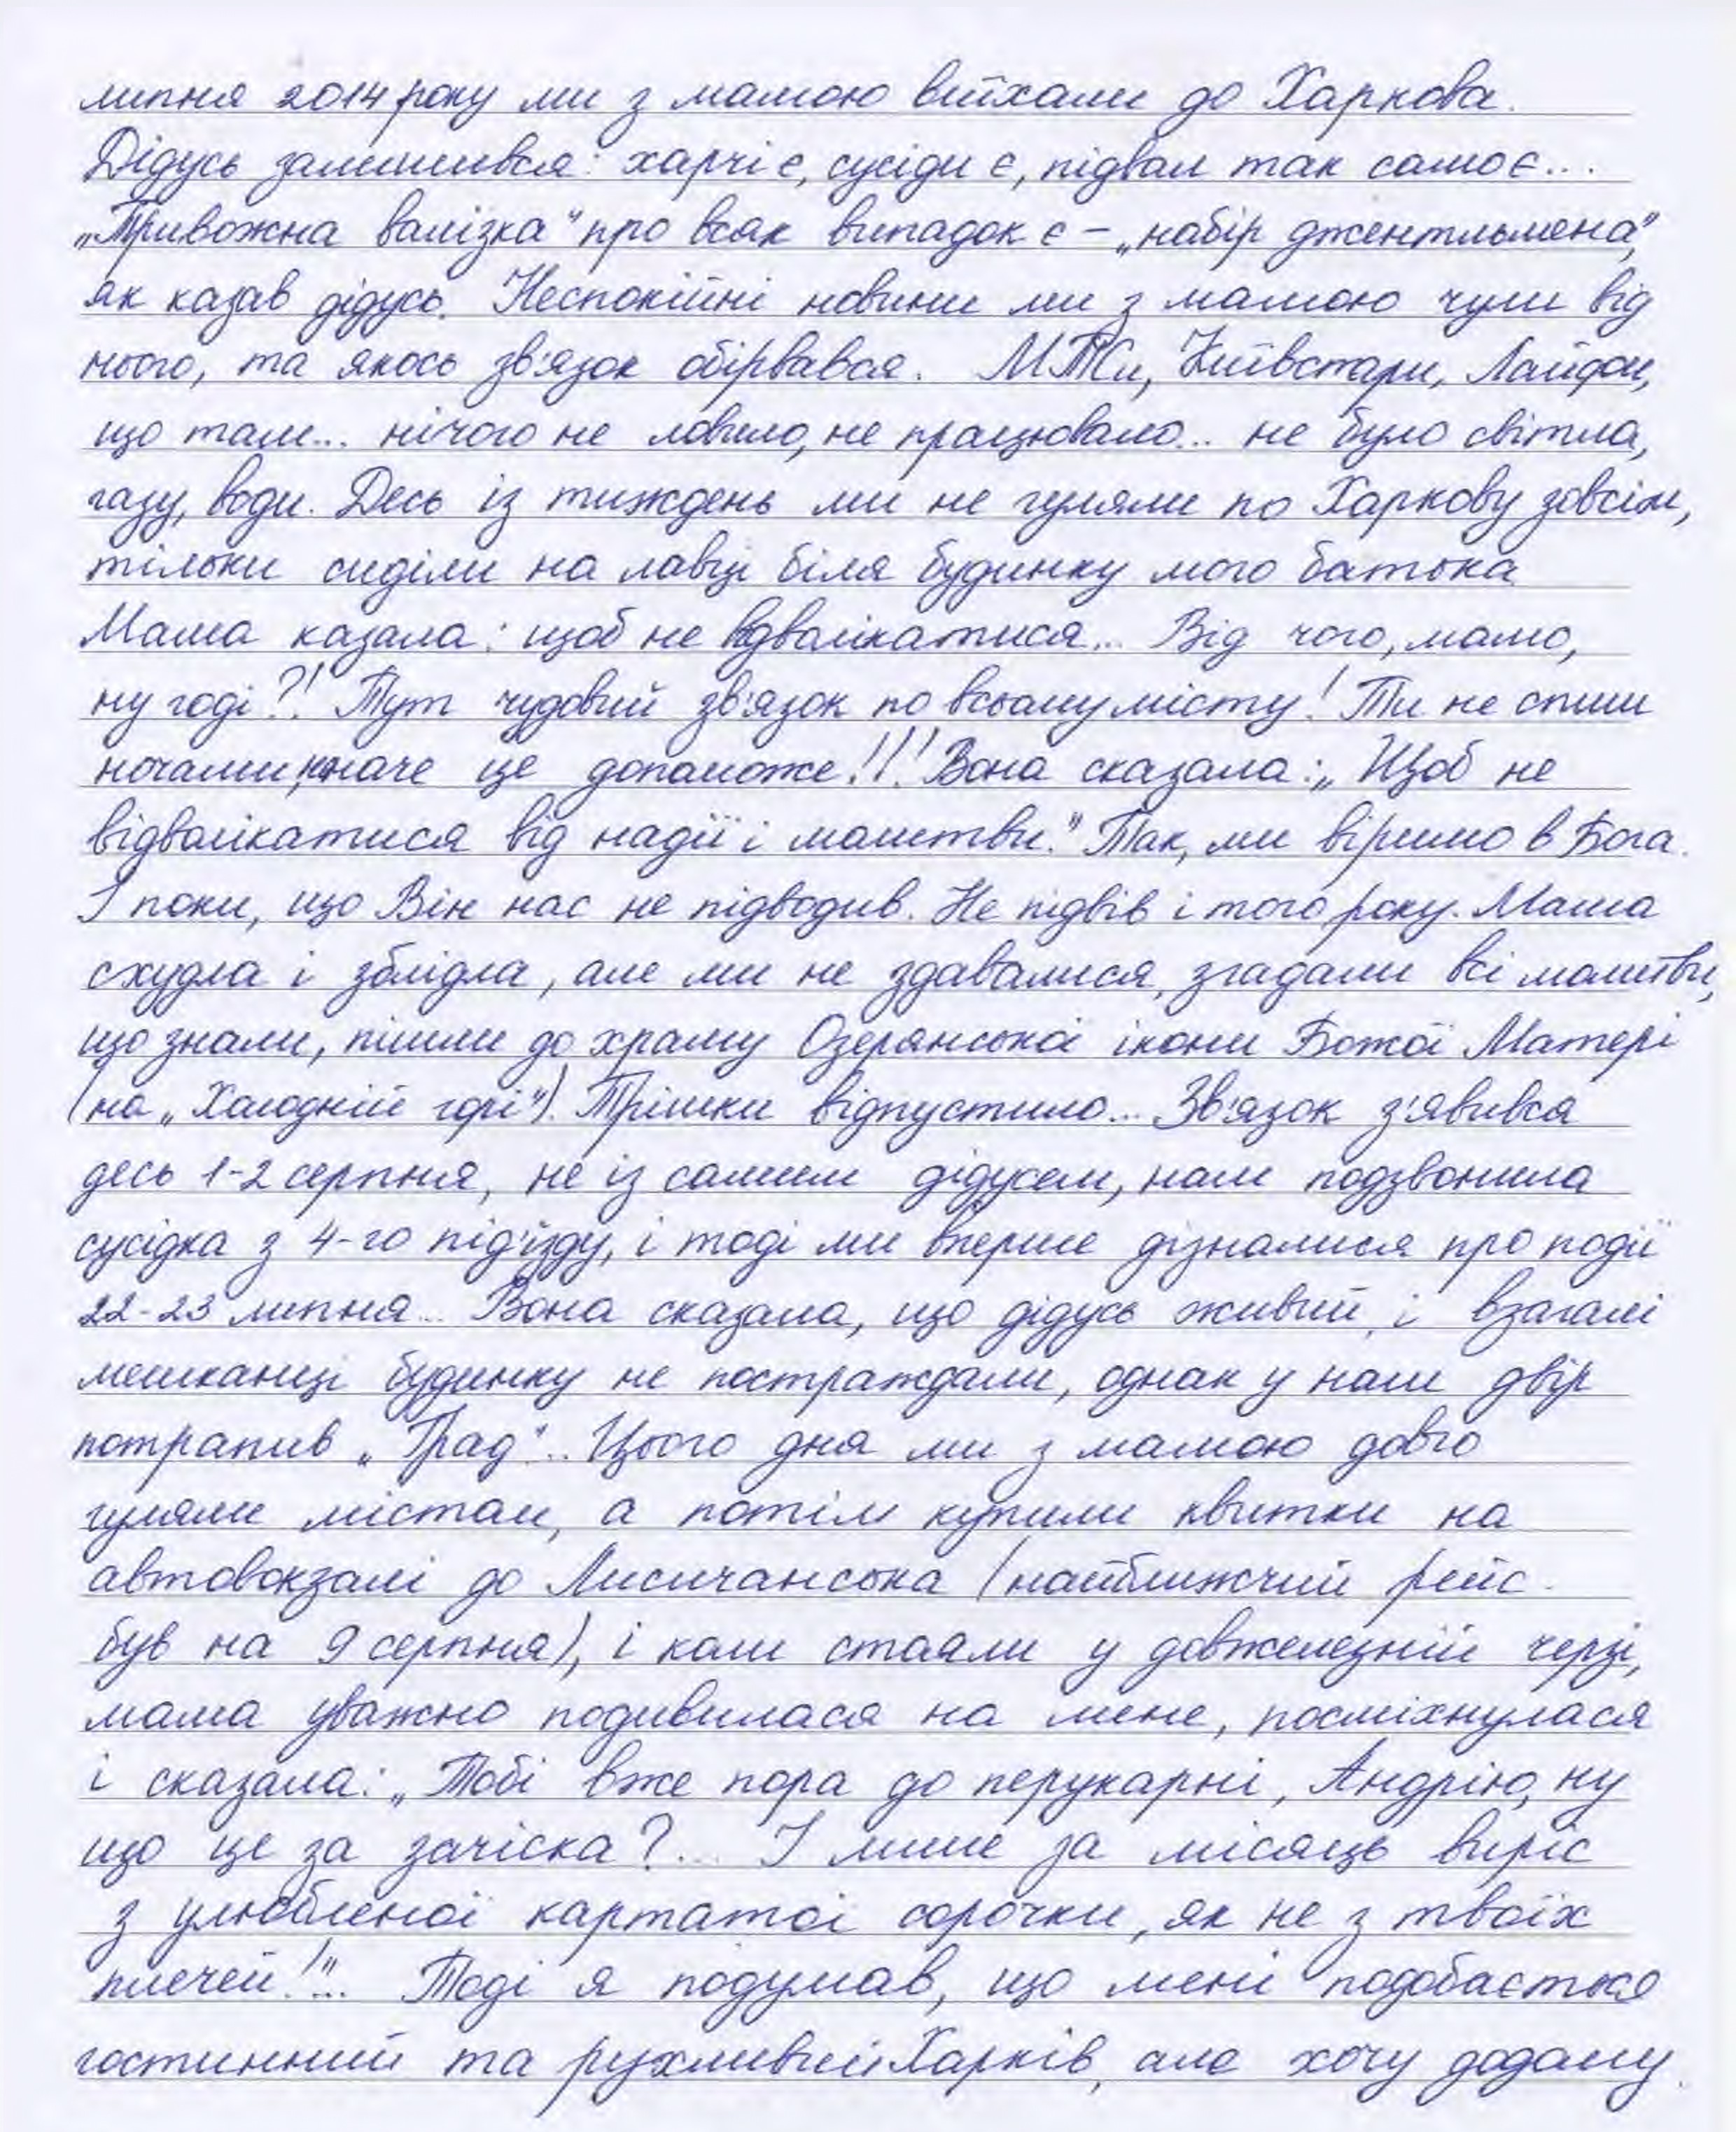 липня 2014 року ми з мамою виїхали до Харкова.
Дідусь залишився: харчі є, сусіди є, підвал так само є...
„Тривожна валізка" про всяк випадок є – „набір джентльмена",
як казав дідусь. Неспокійні новини ми з мамою чули від
нього, та якось зв'язок обірвався. МТСи, Київстари, Лайфи,
що там... нічого не ловило, не працювало... не було світла,
газу, води. Десь із тиждень ми не гуляли по Харкову зовсім,
тільки сиділи на лавці біля будинку мого батька
Мама казала: щоб не відволікатися... Від чого, мамо,
ну годі?! Тут чудовий зв'язок по всьому місту! Ти не спиш
ночами, наче це допоможе!!! Вона сказала: „Щоб не
відволікатися від надії і молитви." Так, ми віримо в Бога.
І поки, що Він нас не підводив. Не підвів і того року. Мама
схудла і зблідла, але ми не здавалися, згадали всі молитви,
що знали, пішли до храму Озерянської ікони Божої Матері
(на „Холодній горі"). Трішки відпустило... Зв'язок з'явився
десь 1-2 серпня, не із самим дідусем, нам подзвонила
сусідка з 4-го під'їзду, і тоді ми вперше дізналися про події
22-23 липня... Вона сказала, що дідусь живий, і взагалі
мешканці будинку не постраждали, однак у наш двір
потрапив „Град"... Цього дня ми з мамою довго
гуляли містом, а потім купили квитки на
автовокзалі до Лисичанська (найближчий рейс
був на 9 серпня), і коли стояли у довжелезній черзі,
мама уважно подивилася на мене, посміхнулася
і сказала: „Тобі вже пора до перукарні, Андрію, ну
що це за зачіска?... І лише за місяць виріс
з улюбленої картатої сорочки, як не з твоїх
плечей!"... Тоді я подумав, що мені подобається
гостинний та рухливий Харків, але хочу додому.